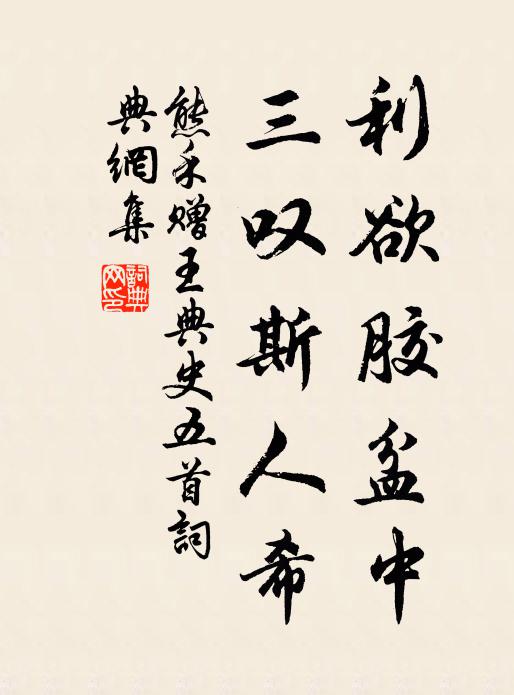 利欲胶盆中
三叹斯人希
熊禾赠王典史五首詞
典網集
詞典网印